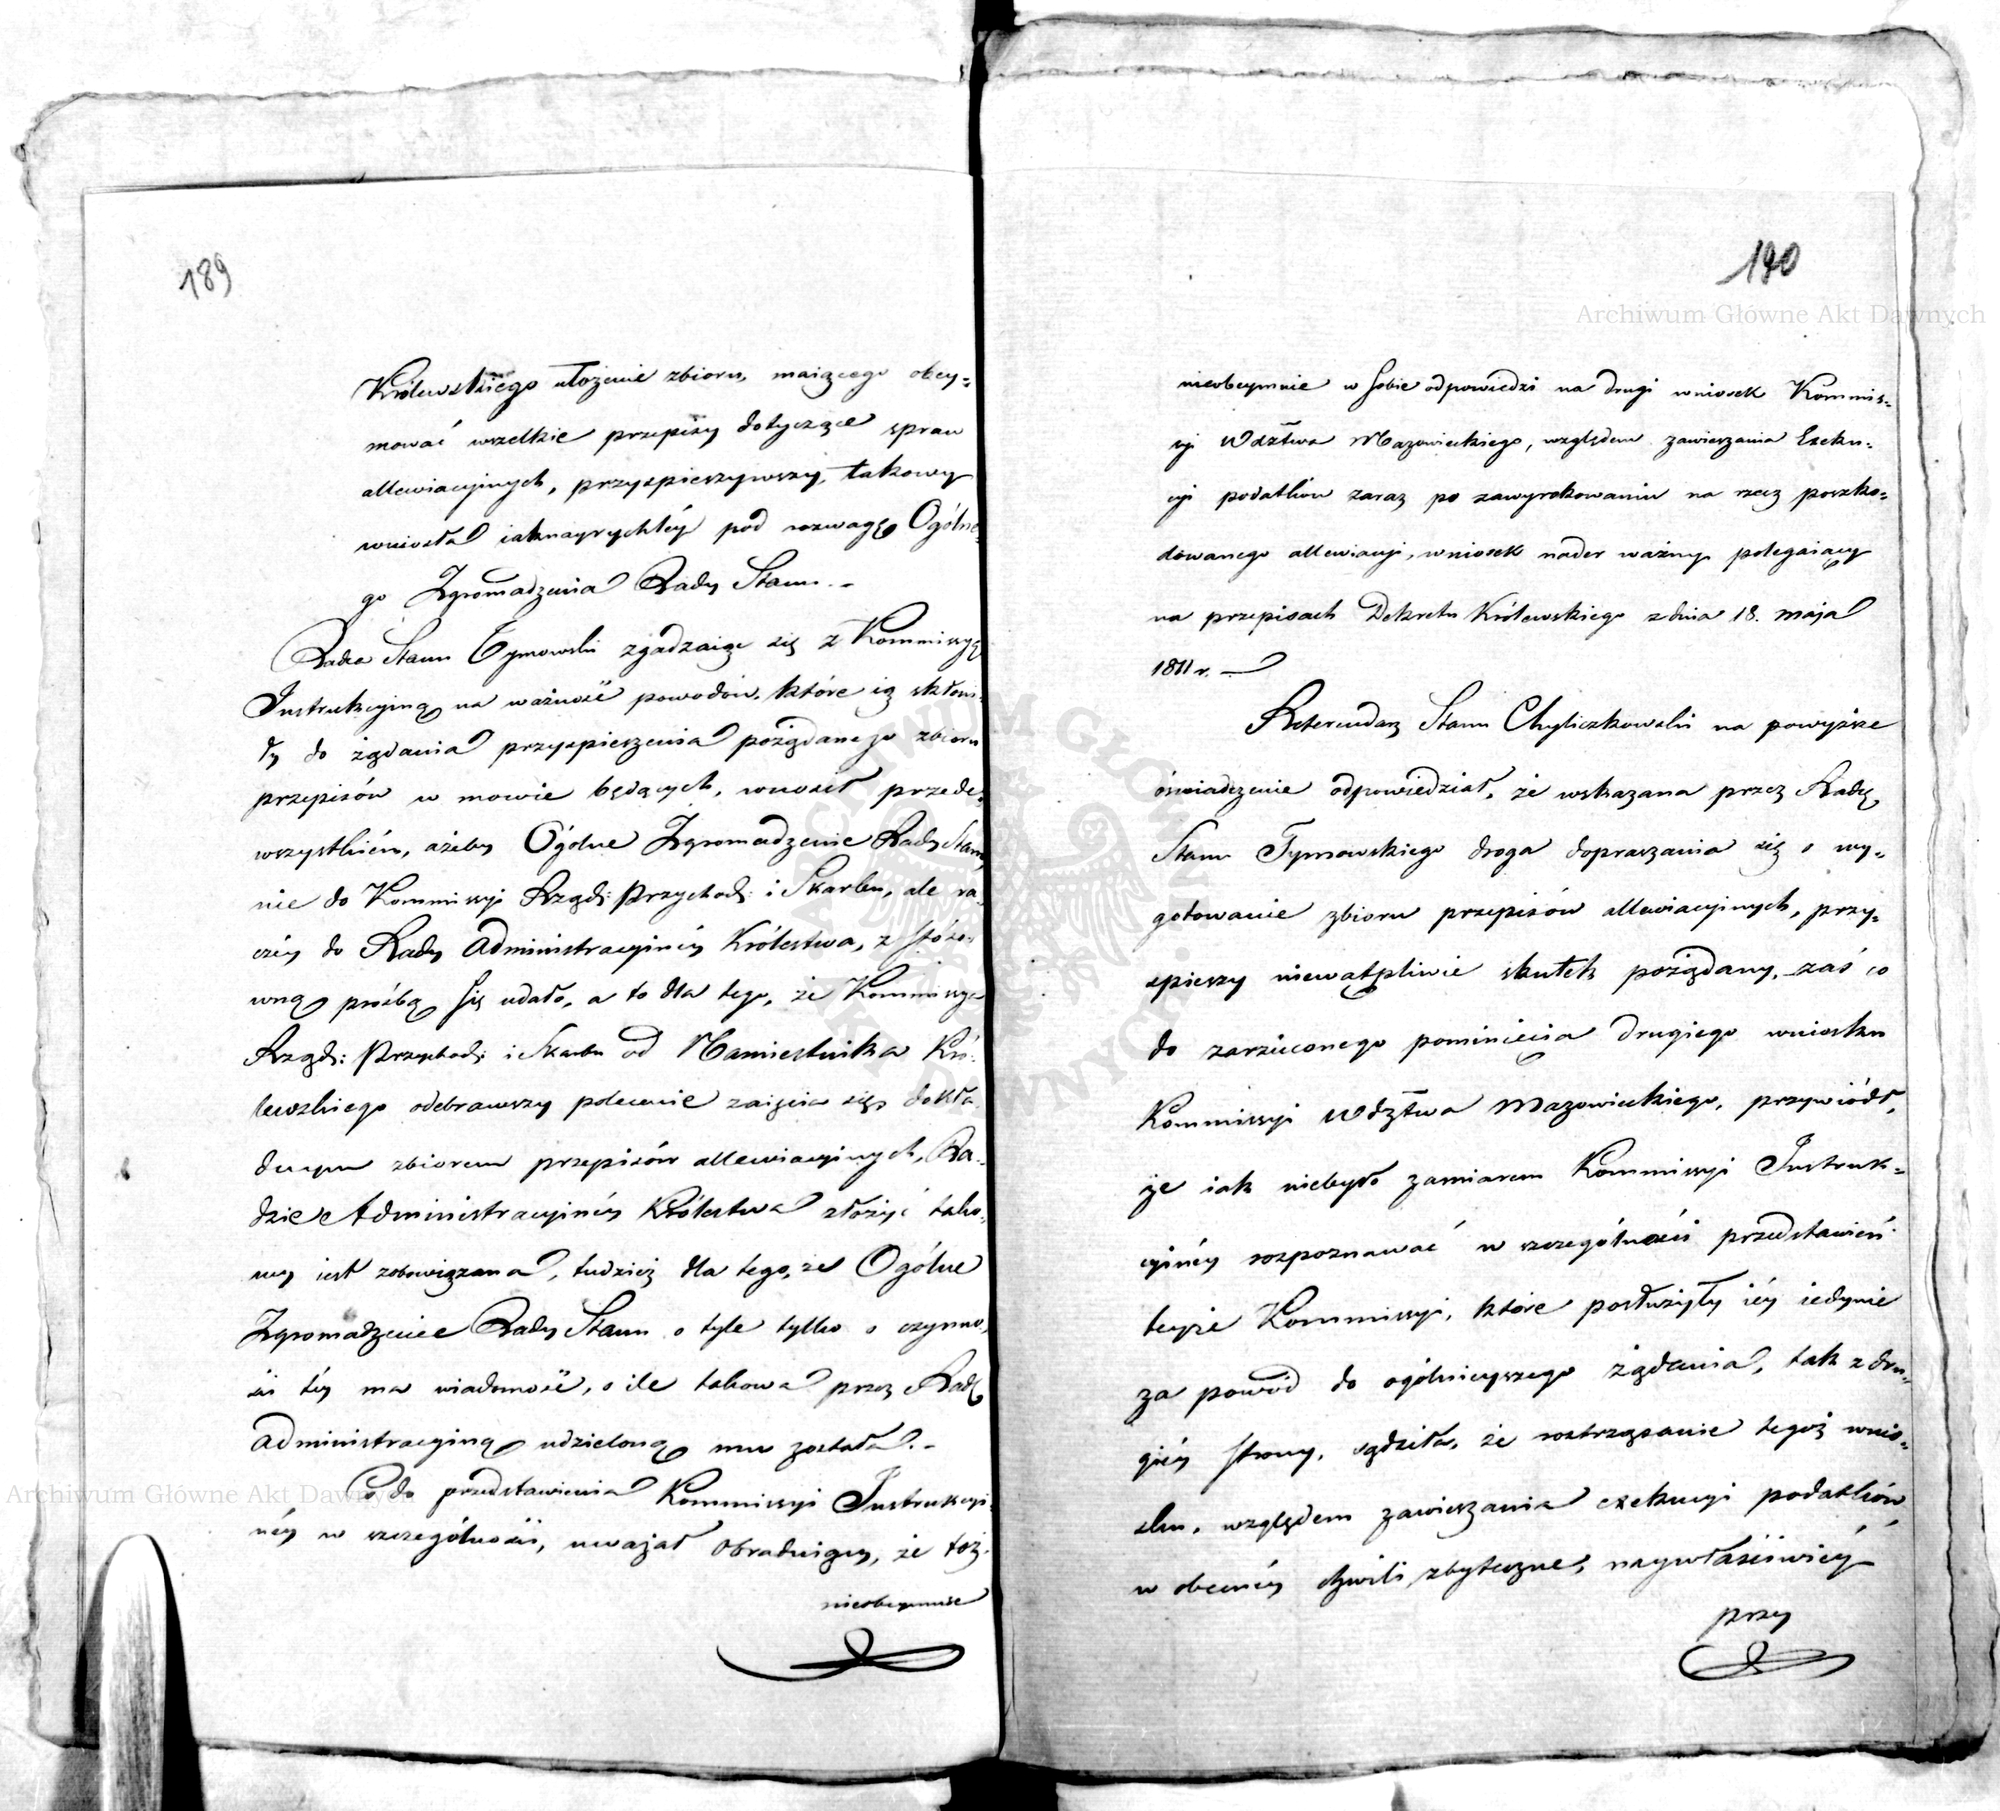 189
Królewskiego ułożenie zbioru, maiącego obey=
mować wszelkie przepisy dotyczące spraw
allewiacyinych, przyspieszywszy, takowy
wniosła iaknayrychléy pod rozwagę Ogólne-
go Zgromadzenia Rady Stanu. –
Radca Stanu Tymowski zgadzaiąc się z Kommissyą
Instrukcyiną na ważność powodów, które ią skłoni-
ły do żądania przyspieszenia pożądanego zbioru
przepisów w mowie będących, wnosił przede-
wszystkiém, ażeby Ogólne Zgromadzenie Rady Stanu,
nie do Kommissyi Rządː Przychodː i Skarbu, ale ra-
czéy do Rady Administracyinéy Królestwa, z stóso-
wną prośbą się udało, a to dla tego, że Kommissya
Rządː Przychodː i Skarbu od Namiestnika Kró-
lewskiego odebrawszy polecenie zaięcia się dokła-
dnym zbiorem przepisów allewiacyinych, Ra-
dzie Administracyinéy Królestwa złożyć tako-
wy iest zobowiązana, tudzież dla tego, że Ogólne
Zgromadzenie Rady Stanu o tyle tylko o czynno-
ści téy ma wiadomość, o ile takowa przez Radę
Administracyiną udzieloną mu została. –
Co do przedstawienia Kommissyi Instrukcyi-
néy w szczególności, uważał Obraduiący, że toż
nieobeymuie
190
Archiwum Główne Akt Dawnych
nieobeymuie w sobie odpowiedzi na drugi wniosek Kommis-
syi Wdztwa Mazowieckiego, względem zawieszania Exeku-
cyi podatków zaraz po zawyrokowaniu na rzecz poszko-
dowanego allewiacyi, wniosek nader ważny polegaiący
na przepisach Dekretu Królewskiego z dnia 18. maja
1811 r. —
Referendarz Stanu Chyliczkowski na powyższe
oświadczenie odpowiedział, że wskazana przez Radcę
Stanu Tymowskiego droga dopraszania się o wy-
gotowanie zbioru przepisów allewiacyinych, przy-
spieszy niewątpliwie skutek pożądany, zaś co
do zarzuconego pominięcia drugiego wniosku
Kommissyi Wdztwa Mazowieckiego, przywiódł,
że iak niebyło zamiarem Kommissyi Instruk-
cyinéy rozpoznawać w szczególności przedstawień
teyże Kommissyi, które posłużyły iéy iedynie
za powód do ogólnieyszego żądania, tak z dru-
giéy strony, sądziła, że roztrząsanie tegoż wnio-
sku, względem zawieszania exekucyi podatków,
w obecnéy chwili zbyteczne, naywłaściwiéy
przy
Archiwum Główne Akt Dawnych
ARCHIWUM GŁÓWNE AKT DAWNYCH